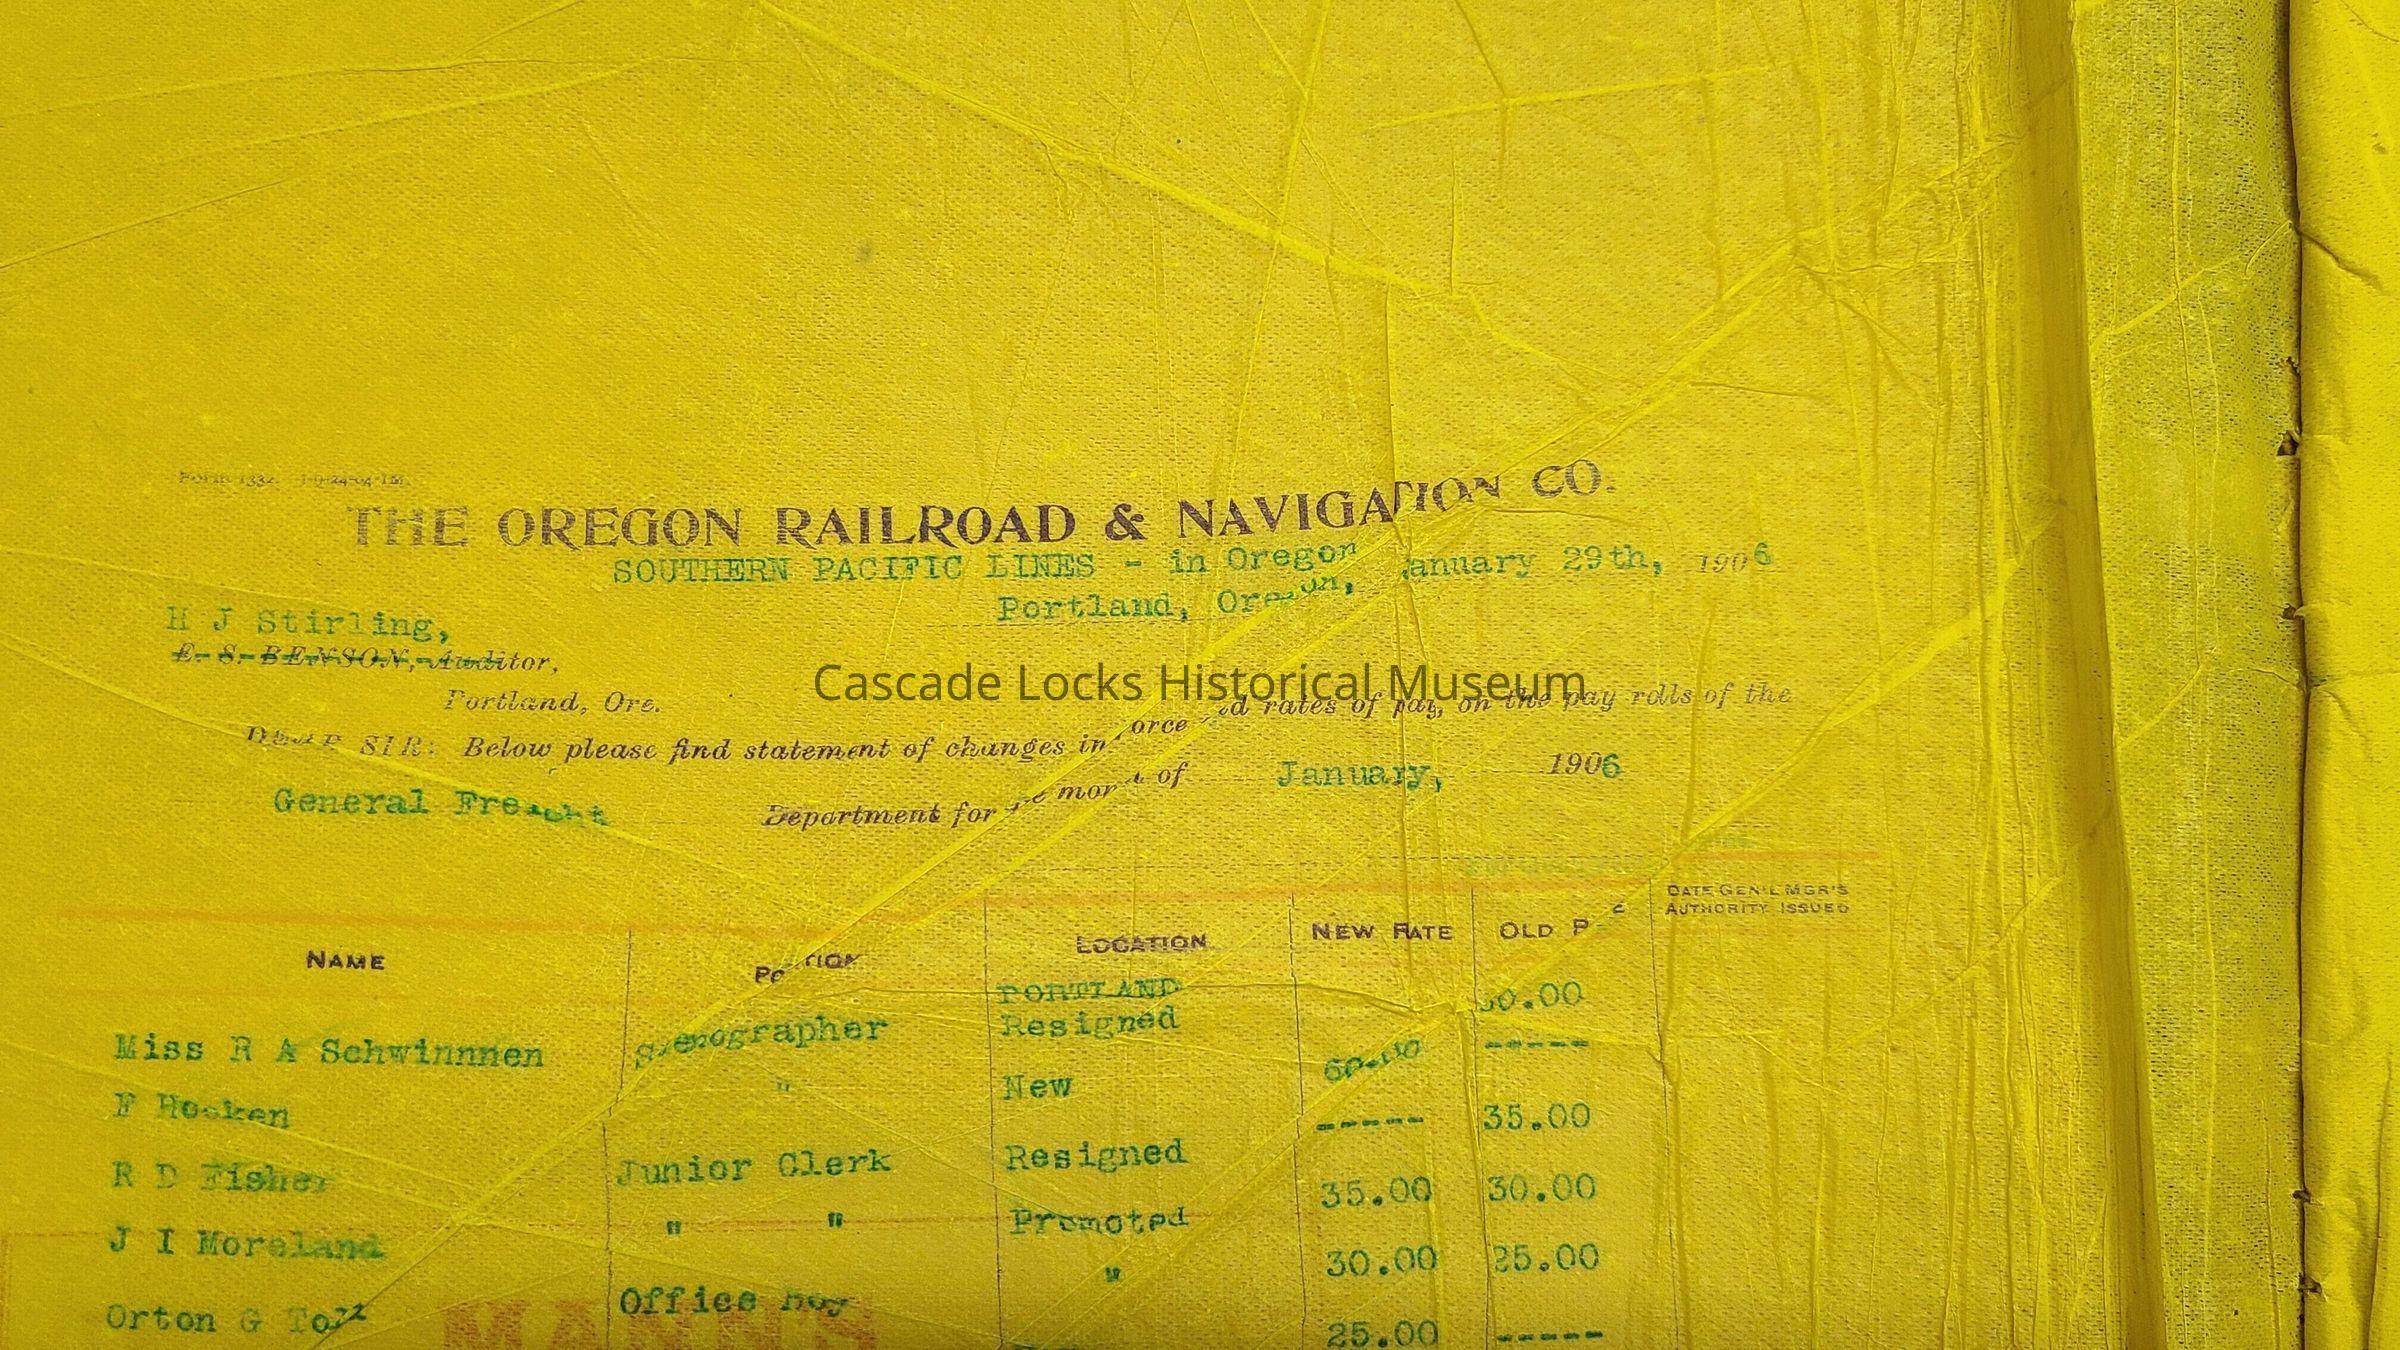 Form 1332. 1-9-24-04-1M.
THE OREGON RAILROAD & NAVIGATION CO.
SOUTHERN PACIFIC LINES - in Oregon
Portland, Oregon, January 29th, 1906
H J Stirling,
E. S. BENSON, Auditor,
Portland, Ore.
Cascade Locks Historical Museum
DEAR SIR: Below please find statement of changes in force and rates of pay, on the pay rolls of the
General Freight Department for the month of January, 1906
NAME POSITION LOCATION NEW RATE OLD RATE DATE GEN'L MGR'S AUTHORITY ISSUED
PORTLAND
Miss R A Schwinnnen Stenographer Resigned 60.00
F Hocken " New 60.00 -----
R D Fisher Junior Clerk Resigned ----- 35.00
J I Moreland " " Promoted 35.00 30.00
Orton G Toll Office Boy " 30.00 25.00
25.00 -----
MANN'S